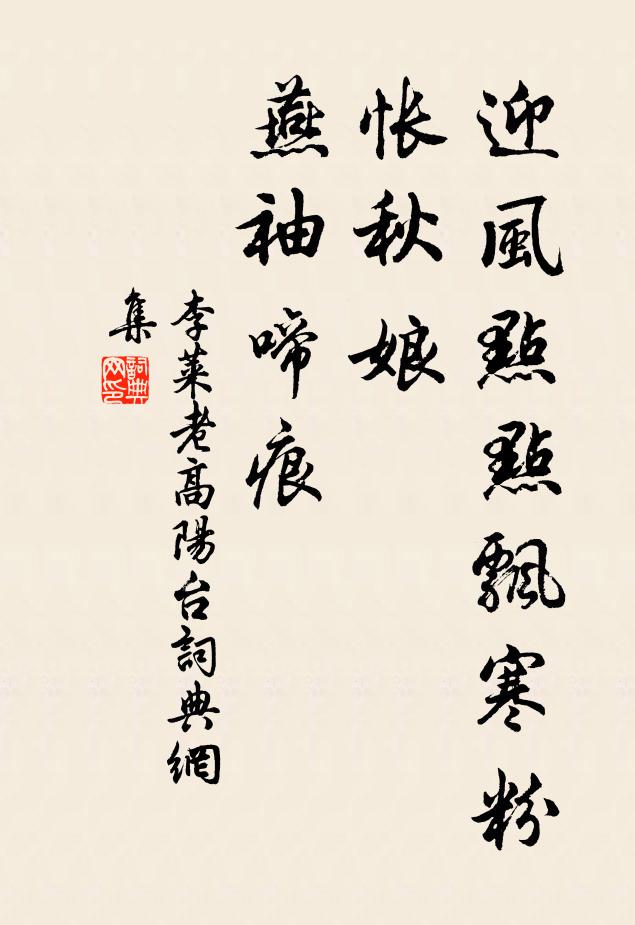 迎風點點飄寒粉
悵秋娘
燕袖啼痕
李萊老高陽台詞典網
集
詞典
网印